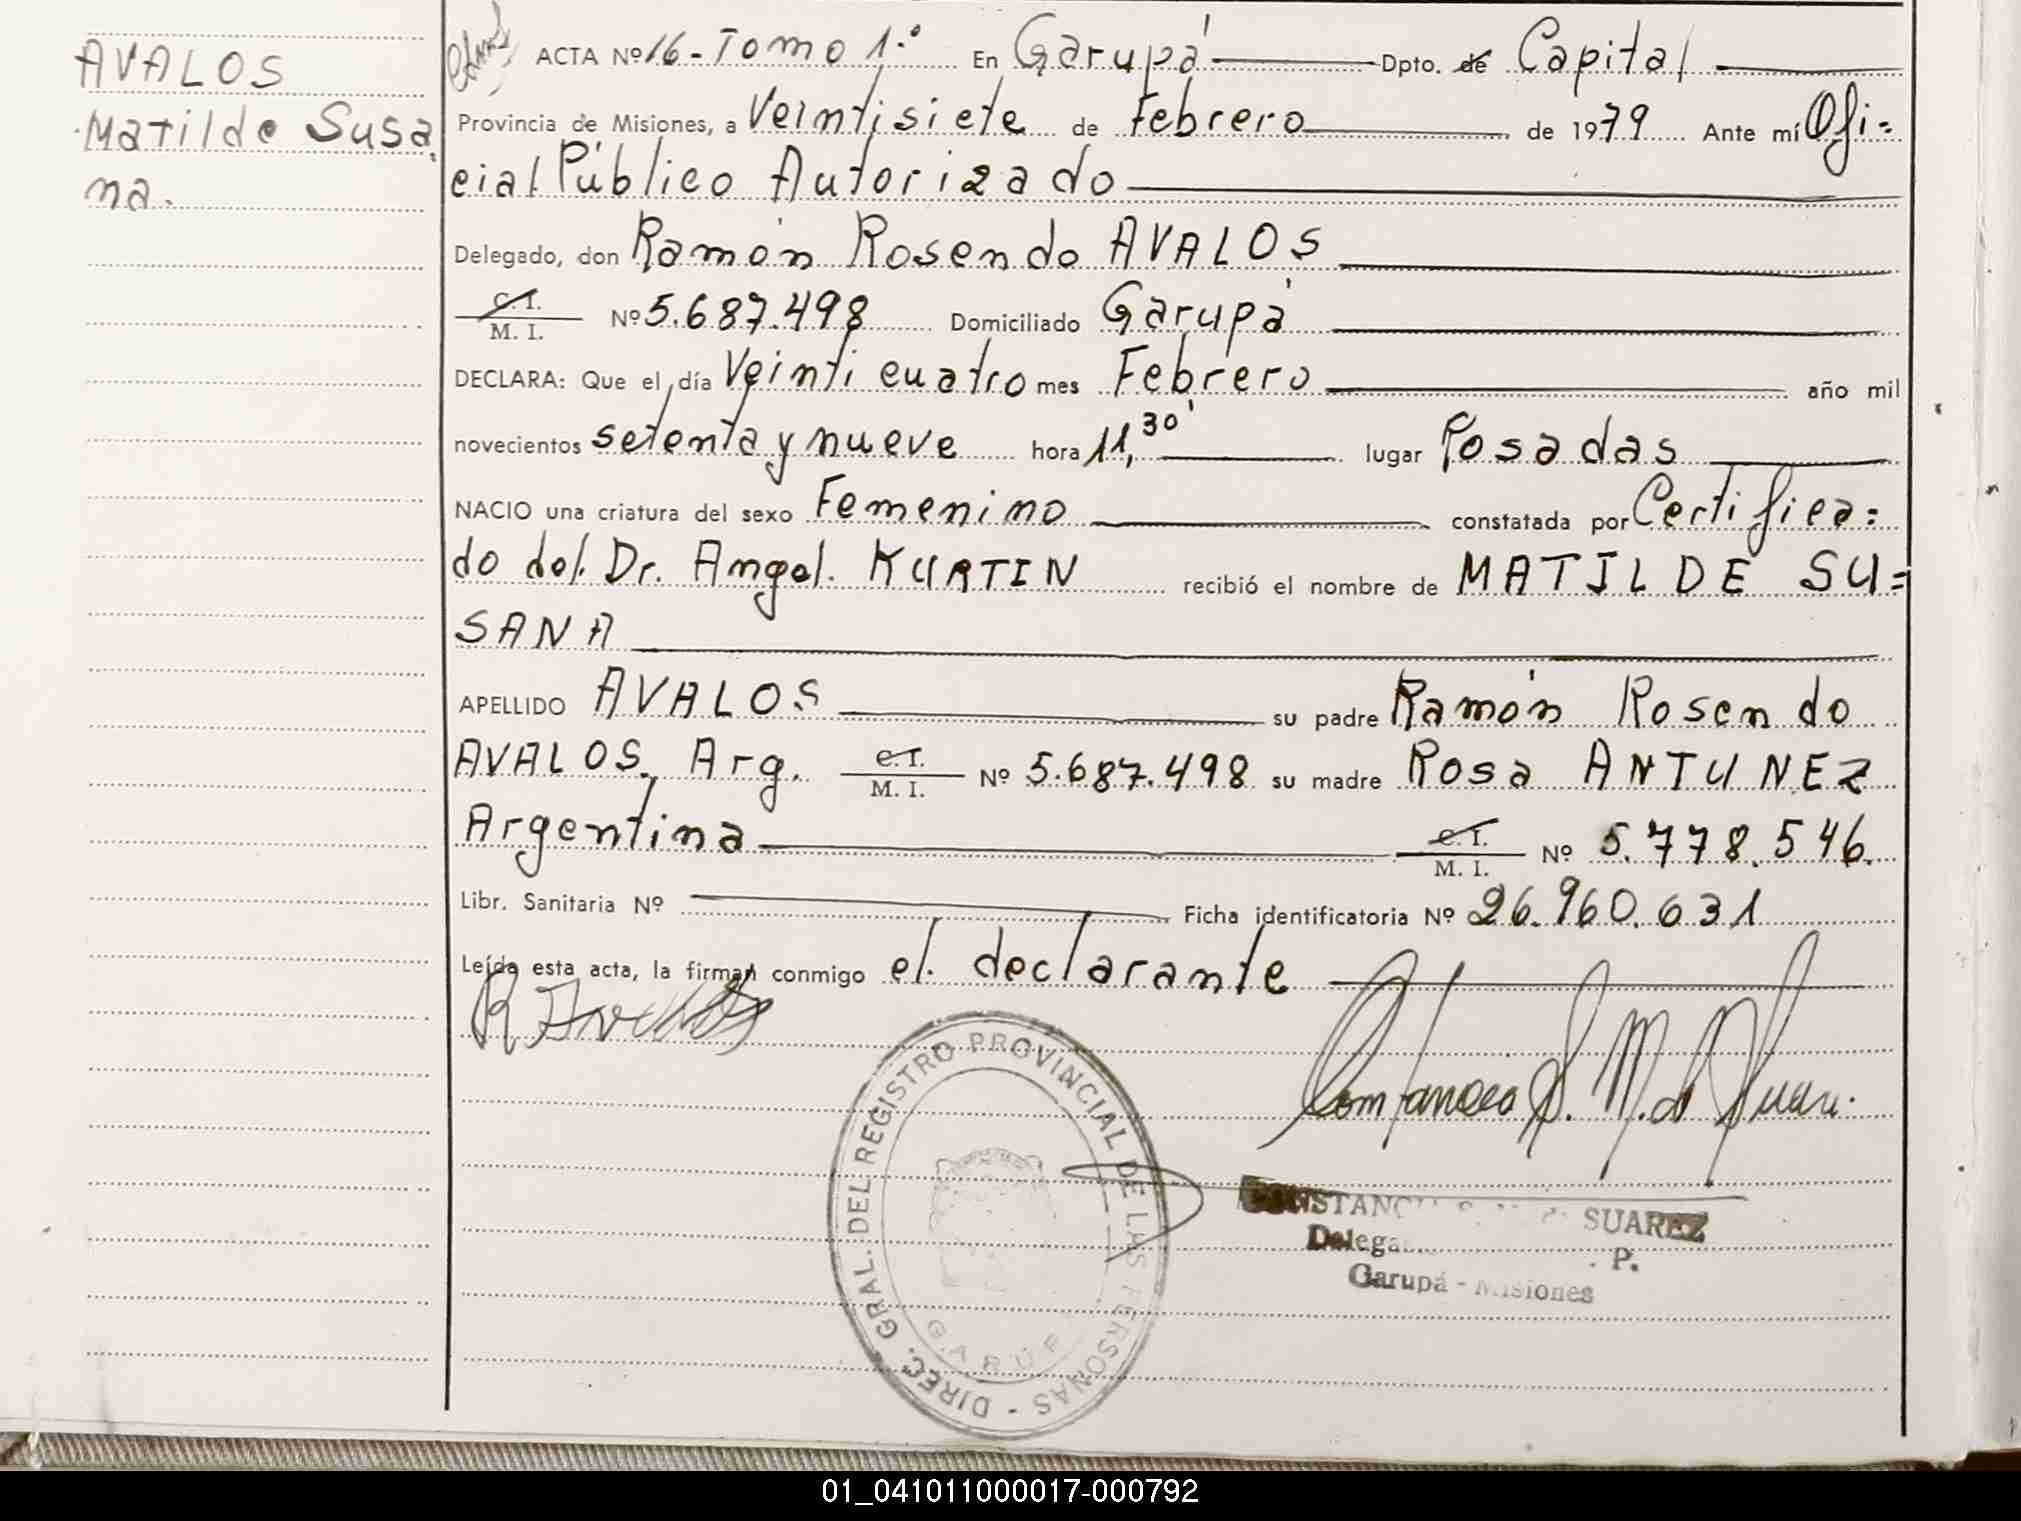 AVALOS
Matilde Susa
na.
ACTA Nº 16 - Tomo 1.º En Garupá Dpto. de Capital
Provincia de Misiones, a Veintisiete de Febrero de 1979 Ante mí Ofi=
cial Público Autorizado
Delegado, don Ramón Rosendo AVALOS
C. I.
M. I. Nº 5.687.498 Domiciliado Garupá
DECLARA: Que el día Veinticuatro mes Febrero año mil
novecientos setenta y nueve hora 11,30' lugar Posadas
NACIO una criatura del sexo Femenino constatada por Certifica=
do del Dr. Angel KURTIN recibió el nombre de MATILDE SU=
SANA
APELLIDO AVALOS su padre Ramón Rosendo
AVALOS, Arg. C. I. M. I. Nº 5.687.498 su madre Rosa ANTUNEZ
Argentina C. I. M. I. Nº 5.778.546.
Libr. Sanitaria Nº Ficha identificatoria Nº 26.960.631
Leída esta acta, la firman conmigo el declarante
DIREC. GRAL. DEL REGISTRO PROVINCIAL DE LAS PERSONAS -
GARUP
SUAREZ
P.
Garupá - Misiones
01_041011000017-000792